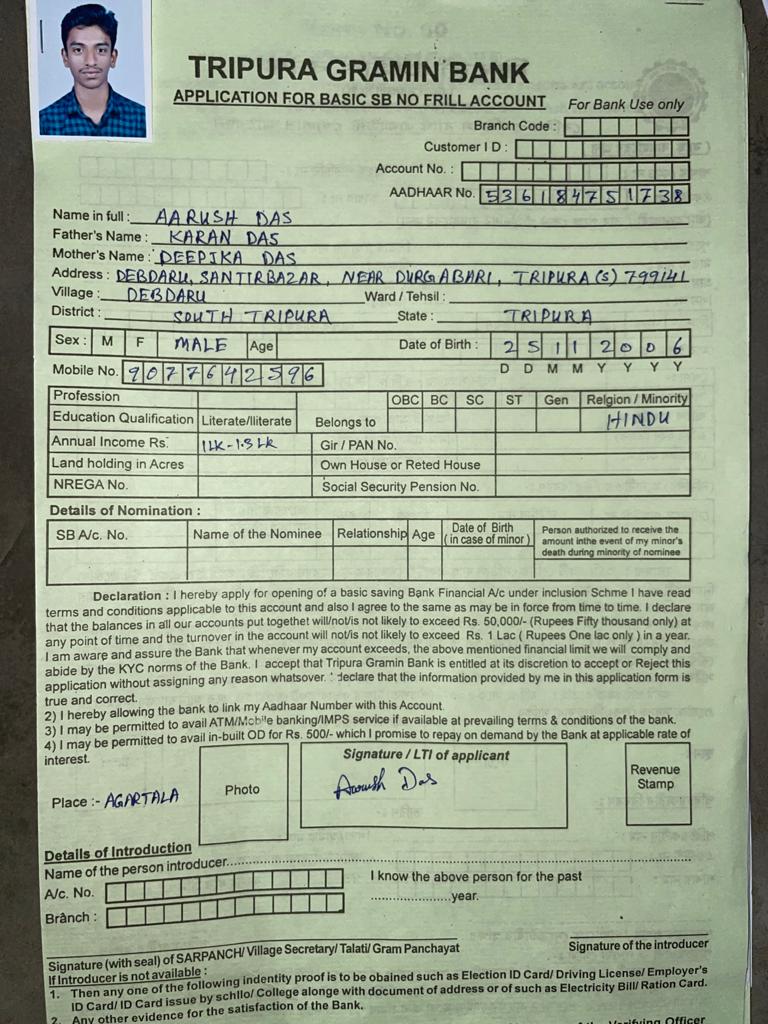 TRIPURA GRAMIN BANK
APPLICATION FOR BASIC SB NO FRILL ACCOUNT
For Bank Use only
Branch Code :
Customer I D :
Account No. :
AADHAAR No. 536184751738
Name in full : AARUSH DAS
Father's Name : KARAN DAS
Mother's Name : DEEPIKA DAS
Address : DEBDARU, SANTIRBAZAR, NEAR DURGABARI, TRIPURA (S) 799141
Village : DEBDARU Ward / Tehsil :
District : SOUTH TRIPURA State : TRIPURA
Sex : M F MALE Age Date of Birth : 25112006
D D M M Y Y Y Y
Mobile No. 9077642596
Profession OBC BC SC ST Gen Relgion / Minority
Education Qualification Literate/Iliterate Belongs to HINDU
Annual Income Rs. 1LK-1.3LK Gir / PAN No.
Land holding in Acres Own House or Reted House
NREGA No. Social Security Pension No.
Details of Nomination :
SB A/c. No. Name of the Nominee Relationship Age Date of Birth (in case of minor) Person authorized to receive the amount inthe event of my minor's death during minority of nominee
Declaration : I hereby apply for opening of a basic saving Bank Financial A/c under inclusion Schme I have read
terms and conditions applicable to this account and also I agree to the same as may be in force from time to time. I declare
that the balances in all our accounts put togethet will/not/is not likely to exceed Rs. 50,000/- (Rupees Fifty thousand only) at
any point of time and the turnover in the account will not/is not likely to exceed Rs. 1 Lac ( Rupees One lac only ) in a year.
I am aware and assure the Bank that whenever my account exceeds, the above mentioned financial limit we will comply and
abide by the KYC norms of the Bank. I accept that Tripura Gramin Bank is entitled at its discretion to accept or Reject this
application without assigning any reason whatsover. declare that the information provided by me in this application form is
true and correct.
2) I hereby allowing the bank to link my Aadhaar Number with this Account.
3) I may be permitted to avail ATM/Mobile banking/IMPS service if available at prevailing terms & conditions of the bank.
4) I may be permitted to avail in-built OD for Rs. 500/- which I promise to repay on demand by the Bank at applicable rate of
interest.
Place :- AGARTALA
Photo
Signature / LTI of applicant
Aarush Das
Revenue
Stamp
Details of Introduction
Name of the person introducer
A/c. No.
I know the above person for the past
year.
Brânch :
Signature (with seal) of SARPANCH/ Village Secretary/ Talati/ Gram Panchayat
Signature of the introducer
If Introducer is not available :
1. Then any one of the following indentity proof is to be obained such as Election ID Card/ Driving License/ Employer's
ID Card/ ID Card issue by schllo/ College alongwith document of address or of such as Electricity Bill/ Ration Card.
2. Any other evidence for the satisfaction of the Bank.
Verifying Officer